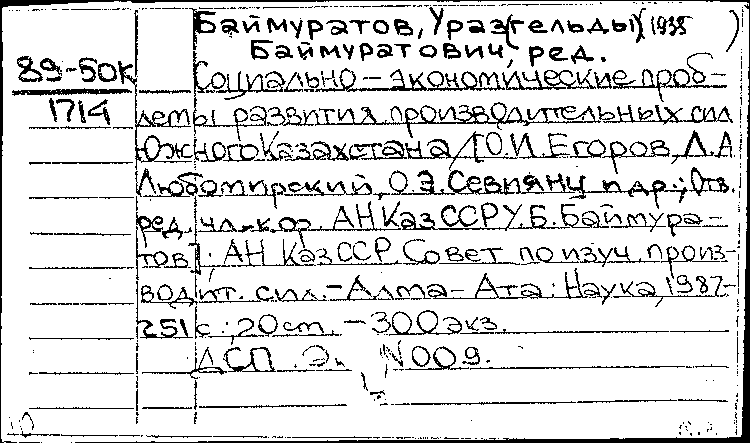 Баймуратов, Ураз(гельды) (1935 )
Баймуратович, ред.
89-50К
Социально-экономические проб-
1714
лемы развития производительных сил
Южного Казахстана / [О.И. Егоров, Л.А
Любомирский, О.Э. Севпянц и др.; Отв.
ред. чл.-кор. АН КазССР У.Б. Баймура-
тов]; АН КазССР. Совет по изуч. произ-
водит. сил. - Алма-Ата: Наука, 1987-
251 с.; 20 см. - 300 экз.
ДСП. Эк. N 009.
10